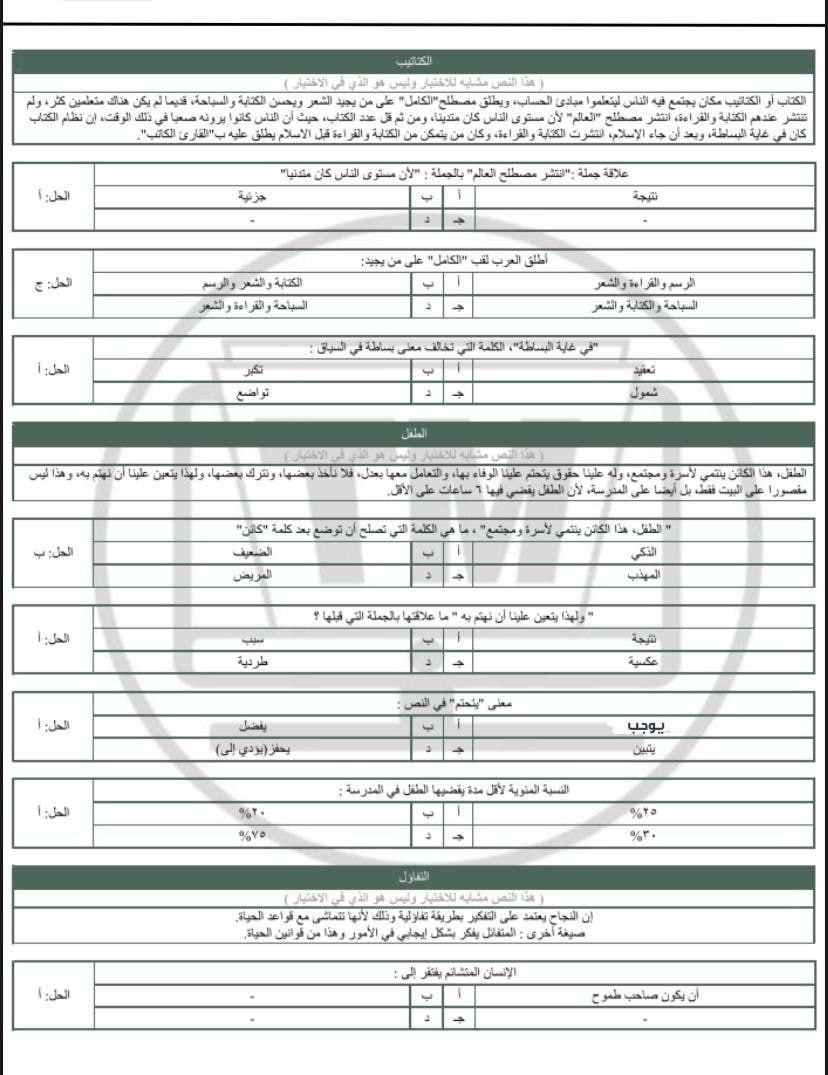 الكتاتيب
( هذا النص مشابه للاختبار وليس هو الذي في الاختبار )
الكتاب أو الكتاتيب مكان يجتمع فيه الناس ليتعلموا مبادئ الحساب، ويطلق مصطلح"الكامل" على من يجيد الشعر ويحسن الكتابة والسباحة، قديما لم يكن هناك متعلمين كثر، ولم
تنتشر عندهم الكتابة والقراءة، انتشر مصطلح "العالم" لأن مستوى الناس كان متدنيا، ومن ثم قل عدد الكتاب، حيث أن الناس كانوا يرونه صعبا في ذلك الوقت، إن نظام الكتاب
كان في غاية البساطة، وبعد أن جاء الإسلام، انتشرت الكتابة والقراءة، وكان من يتمكن من الكتابة والقراءة قبل الاسلام يطلق عليه ب"القارئ الكاتب".
علاقة جملة :"انتشر مصطلح العالم" بالجملة : "لأن مستوى الناس كان متدنيا"
نتيجة أ ب جزئية الحل: أ
- جـ د -
أطلق العرب لقب "الكامل" على من يجيد:
الرسم والقراءة والشعر أ ب الكتابة والشعر والرسم الحل: ج
السباحة والكتابة والشعر جـ د السباحة والقراءة والشعر
"في غاية البساطة"، الكلمة التي تخالف معنى بساطة في السياق :
تعقيد أ ب تكبر الحل: أ
شمول جـ د تواضع
الطفل
( هذا النص مشابه للاختبار وليس هو الذي في الاختبار )
الطفل، هذا الكائن ينتمي لأسرة ومجتمع، وله علينا حقوق يتحتم علينا الوفاء بها، والتعامل معها بعدل، فلا نأخذ بعضها، ونترك بعضها، ولهذا يتعين علينا أن نهتم به، وهذا ليس
مقصورا على البيت فقط، بل أيضا على المدرسة، لأن الطفل يقضي فيها ٦ ساعات على الأقل.
" الطفل، هذا الكائن ينتمي لأسرة ومجتمع" ، ما هي الكلمة التي تصلح أن توضع بعد كلمة "كائن"
الذكي أ ب الضعيف الحل: ب
المهذب جـ د المريض
" ولهذا يتعين علينا أن نهتم به " ما علاقتها بالجملة التي قبلها ؟
نتيجة أ ب سبب الحل: أ
عكسية جـ د طردية
معنى "يتحتم" في النص :
يوجب أ ب يفضل الحل: أ
يتبين جـ د يحفز(يؤدي إلى)
النسبة المئوية لأقل مدة يقضيها الطفل في المدرسة :
%٢٥ أ ب %٢٠ الحل: أ
%٣٠ جـ د %٧٥
التفاؤل
( هذا النص مشابه للاختبار وليس هو الذي في الاختبار )
إن النجاح يعتمد على التفكير بطريقة تفاؤلية وذلك لأنها تتماشى مع قواعد الحياة.
صيغة أخرى : المتفائل يفكر بشكل إيجابي في الأمور وهذا من قوانين الحياة.
الإنسان المتشائم يفتقر إلى :
أن يكون صاحب طموح أ ب - الحل: أ
- جـ د -